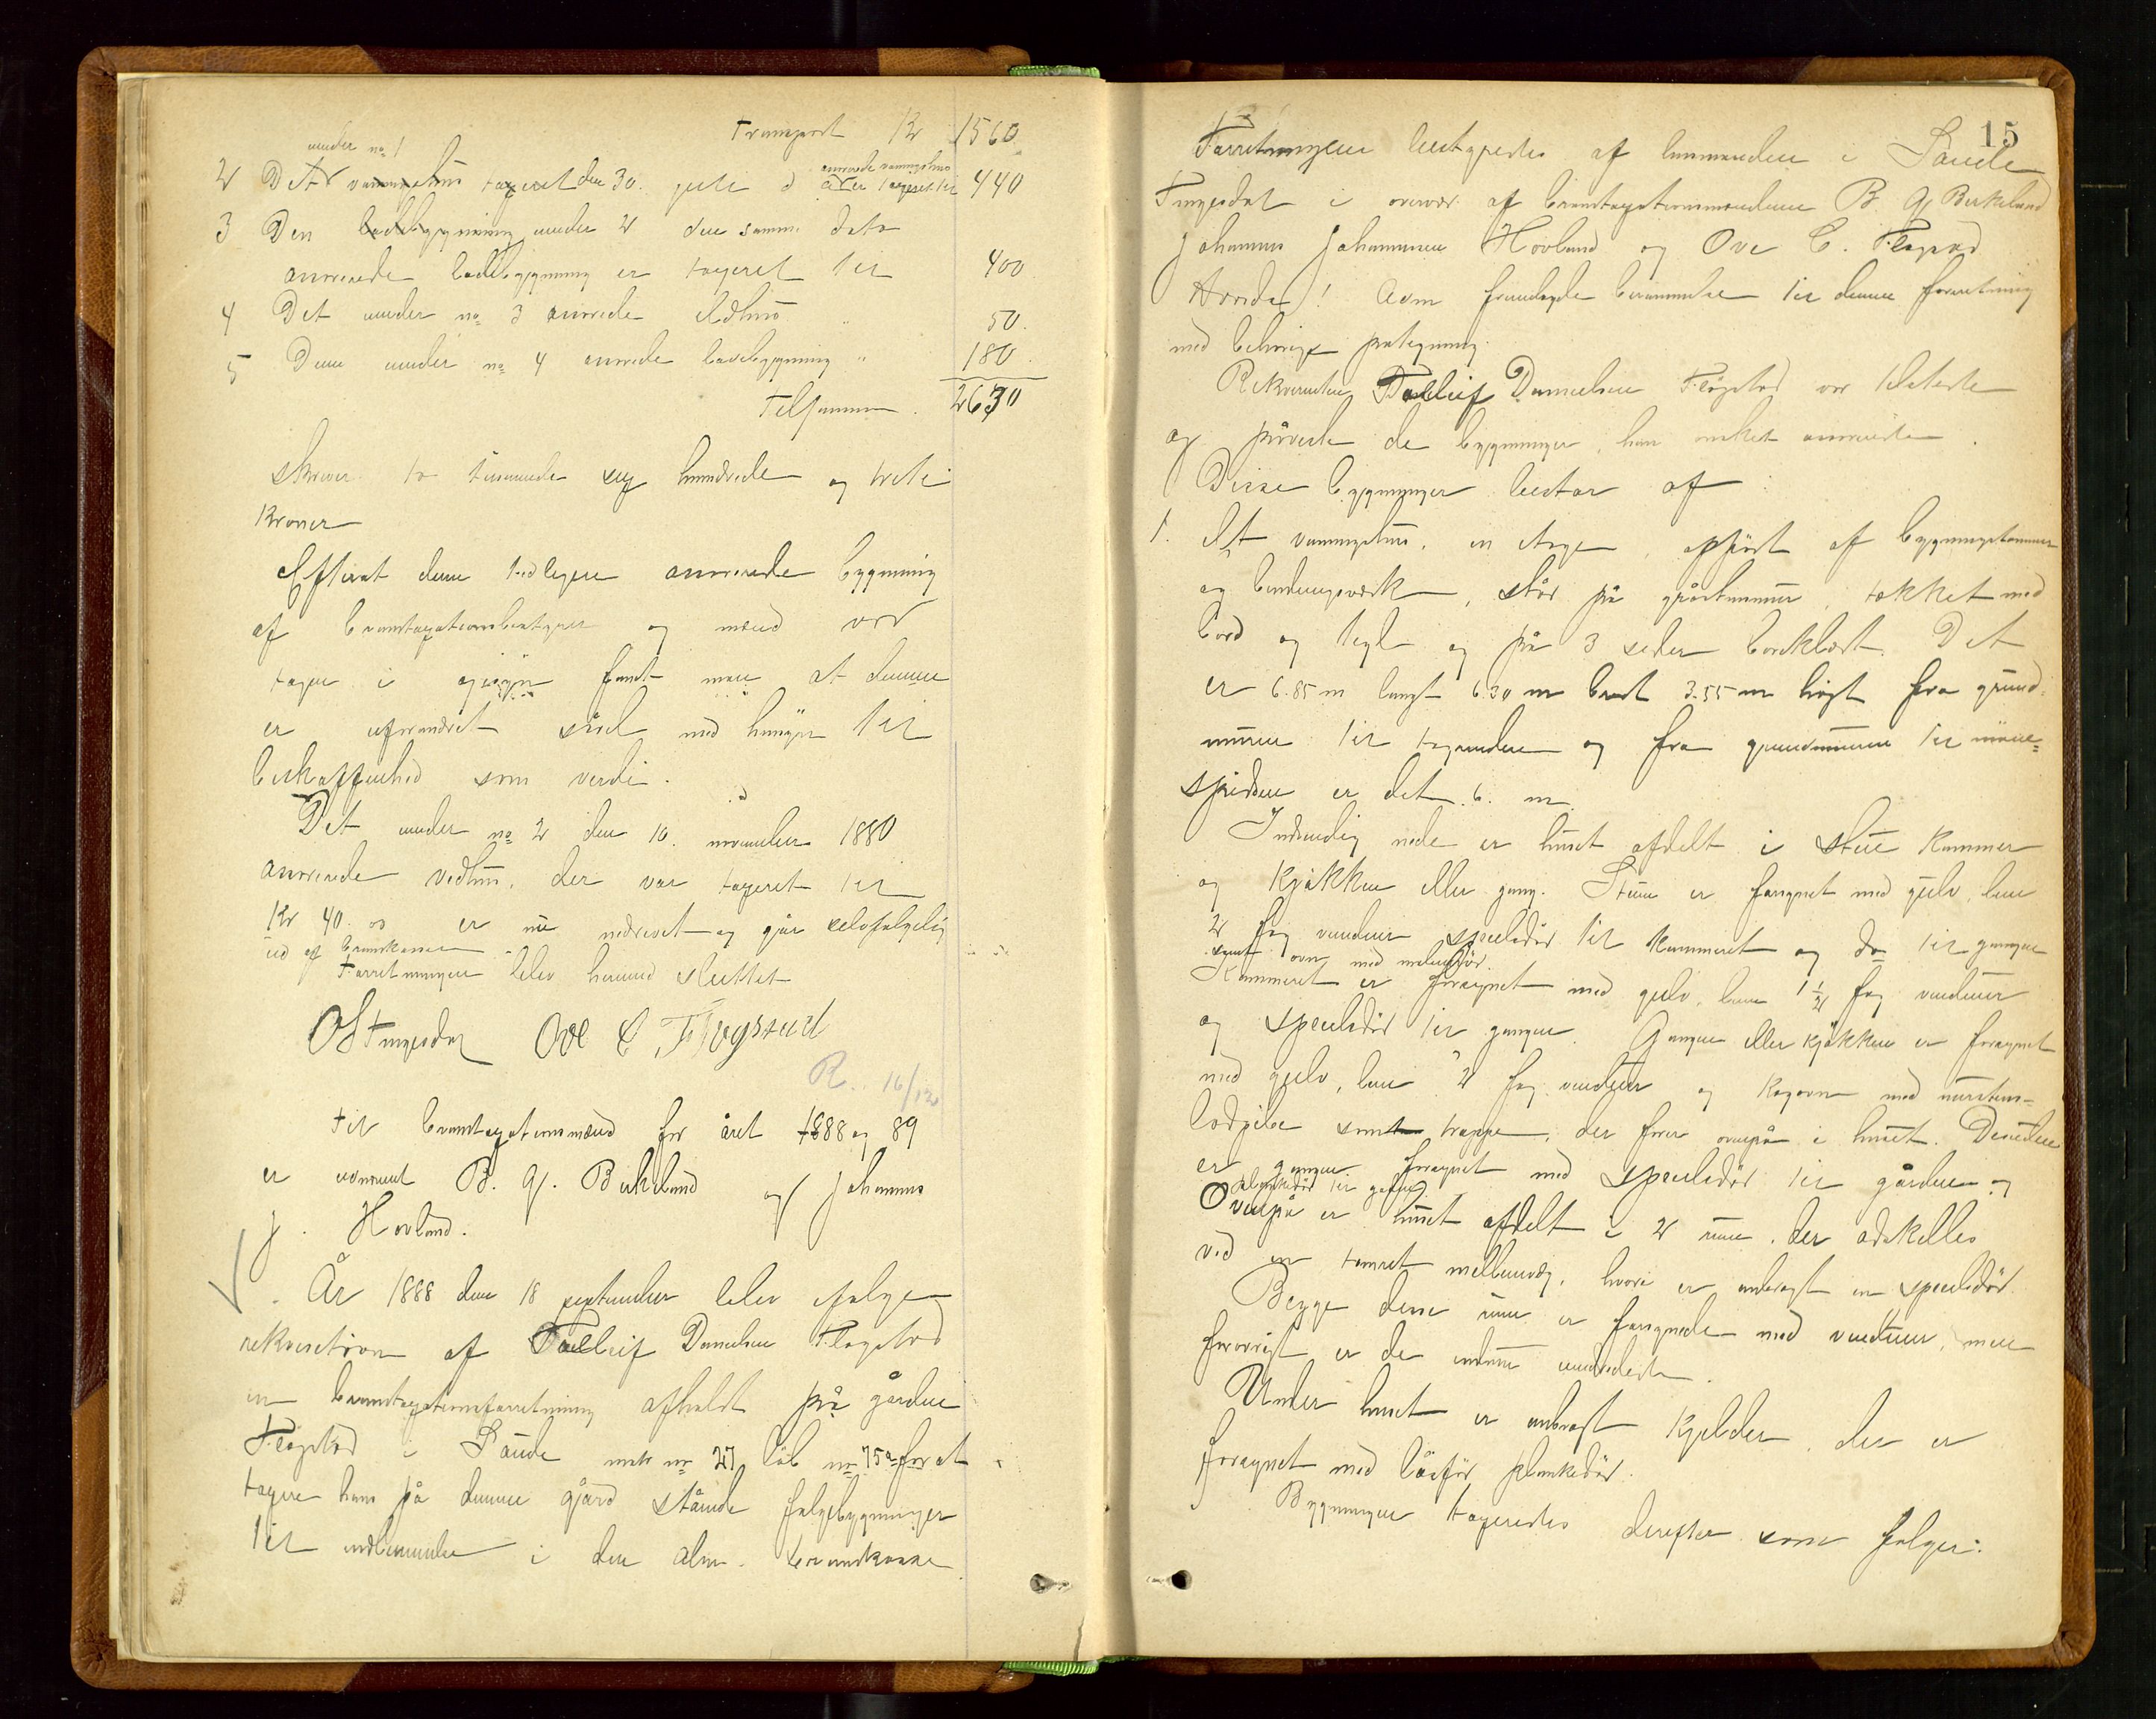 Transport Kr 1560
under no 1
2 Det våningshus taxeret den 30. juli d år anmeldte våningshus er taxeret til 440
3 Den ladebygning under 2 den samme dato
anmeldte ladebygning er taxeret til 400
4 Det under no 3 anmeldte ildhus " 50.
5 Den under no 4 anmeldte ladebygning " 180
Tilsammen. 2630
skriver to tusende sex hundrede og treti
Kroner
Efterat den tidligere anmeldte bygning
af brandtaxationsbestyrer og mænd var
tagen i øjesyn fandt man at denne
er uforandret såvel med hensyn til
beskaffenhed som verdi.
Det under no 2 den 10. november 1880
anmeldte vedhus, der var taxeret til
Kr 40.00 er nu nedrevet og går selvfølgelig
ud af brandkassen
Forretningen blev hermed sluttet
O Stangesdal Ove C. Fløgstad
R. 16/12
Til brandtaxationsmænd for året 1888 og 89
er udnævnt B. G. Birkeland og Johannes
J. Hovland.
År 1888 den 18 september blev ifølge
rekvisition af Tolleif Danielsen Fløgstad
en brandtaxationsforretning afholdt på gården
Fløgstad i Saude matr no 27 løb no 75a for at
taxere hans på denne gård stående følgebygninger
til indlemmelse i den alm. brandkasse.
15
Forretningen bestyredes af lensmanden i Saude
i overvær af brandtaxationsmændene B. G. Birkeland
Johannes Johannesen Hovland og Ove C. Fløgstad
Adm fremlagde berammelse til denne forretning
med behørige påtegning.
Rekvirenten Tolleif Danielsen Fløgstad var tilstede
og påviste de bygninger, han ønsket anmeldte.
Disse bygninger består af:
1. Et våningshus, en etage, opført af bygningstømmer
og bindingsværk, står på gråstensmur, tækket med
bord og tegl og på 3 sider bordklædt. Det
er 6.85 m langt 6.30 m bredt 3.55 m højt fra grund-
muren til tagrenden og fra grundmuren til møne-
spidsen er det 6. m.
Indvendig nede er huset afdelt i stue kammer
og kjøkken eller gang. Stuen er forsynet med gulv, lem
2 fag vinduer speildør til kammeret og do til gangen
samt ovn med
Kammeret er forsynet med gulv, lem 1 1/2 fag vinduer
og speildør til gangen. Gangen eller kjøkken er forsynet
med gulv, lem 2 fag vinduer og kogovn med murstens-
lodpibe samt trappe, der fører ovenpå i huset. Desuden
er gangen forsynet med speildør til gården og
plankedør til
Ovenpå er huset afdelt i 2 rum, der adskilles
ved en tømret mellemvæg, hvori er anbragt en speildør.
Begge disse rum er forsynede med vinduer, men
forøvrigt er de endnu uindredede.
Under huset er anbragt kjelder, der er
forsynet med låsfør plankedør.
Bygningen taxeredes derefter som følger: